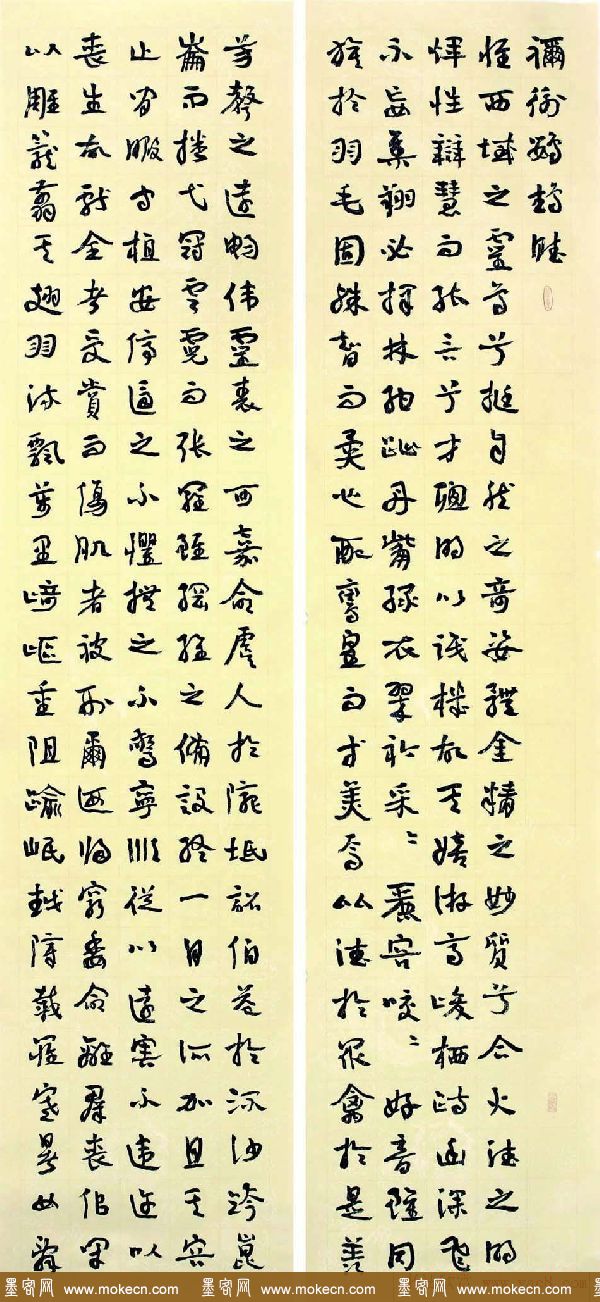 禰衡鸚鵡賦
惟西域之靈鳥兮挺自然之奇姿體金精之妙質兮合火德之明
輝性辯慧而能言兮才聰明以識機故其嬉游高峻栖跱幽深飛
不妄集翔必擇林紺趾丹觜綠衣翠衿采采麗容咬咬好音雖同
族於羽毛固殊智而異心配鸞皇而等美焉比德於眾禽於是羨
芳聲之遠暢偉靈表之可嘉命虞人於隴坻詔伯益於流沙跨崑
崙而播弋冠雲霓而張羅雖綱維之備設終一目之所加且其容
止閑暇守植安停逼之不懼撫之不驚寧順從以遠害不違迕以
喪生故獻全者受賞而傷肌者被刑爾迺歸窮委命離群喪侶閉
以雕籠翦其翅羽流飄萬里崎嶇重阻踰岷越障載罹寒暑女辭
墨客网 www.mokecn.com 墨客网 www.mokecn.com 墨客网 www.mokecn.com